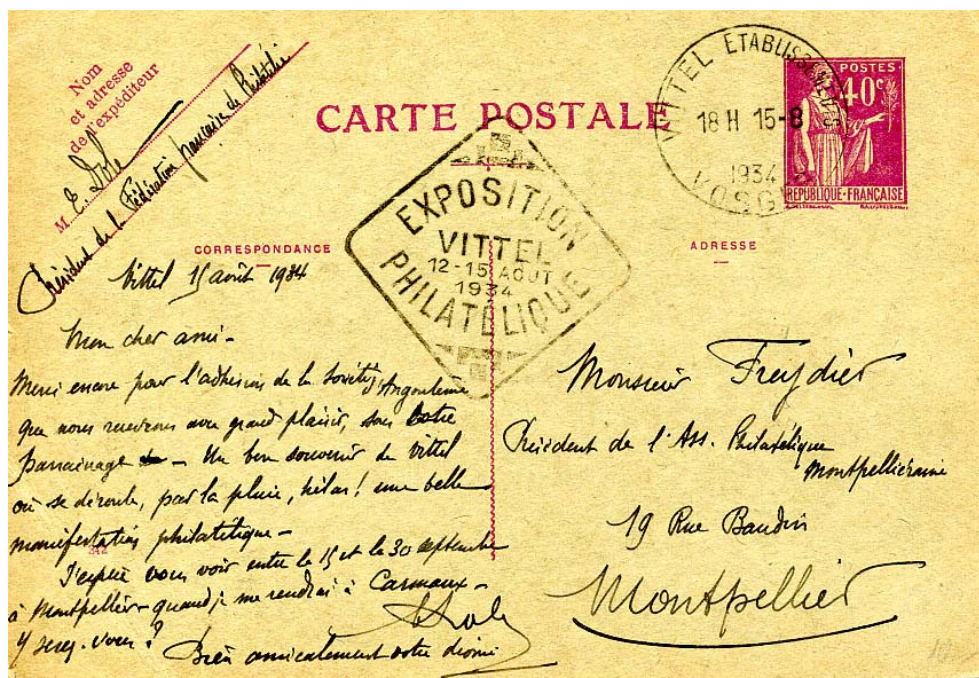 Nom
et adresse
de l'expéditeur
M E. Dole
Président de la Fédération française de Philatélie
CARTE POSTALE
VITTEL ETABLISSEMENTS
18 H 15-8
1934
VOSGES
POSTES
40c
REPUBLIQUE-FRANÇAISE
EXPOSITION
VITTEL
12-15 AOUT
1934
PHILATÉLIQUE
CORRESPONDANCE
Vittel 15 août 1934
Mon cher ami -
Merci encore pour l'adhésion de la Société d'Angoulême
que nous recevrons avec grand plaisir, sous votre
parrainage - Un bon souvenir de Vittel
où se déroule, par la pluie, hélas! une belle
manifestation philatélique -
J'espère vous voir entre le 15 et le 30 septembre
à Montpellier - quand je me rendrai à Carmaux -
Y serez-vous?
Bien amicalement votre dévoué
EDole
342
ADRESSE
Monsieur Freydier
Président de l'Ass. Philatélique
Montpelliéraine
19 Rue Baudin
Montpellier